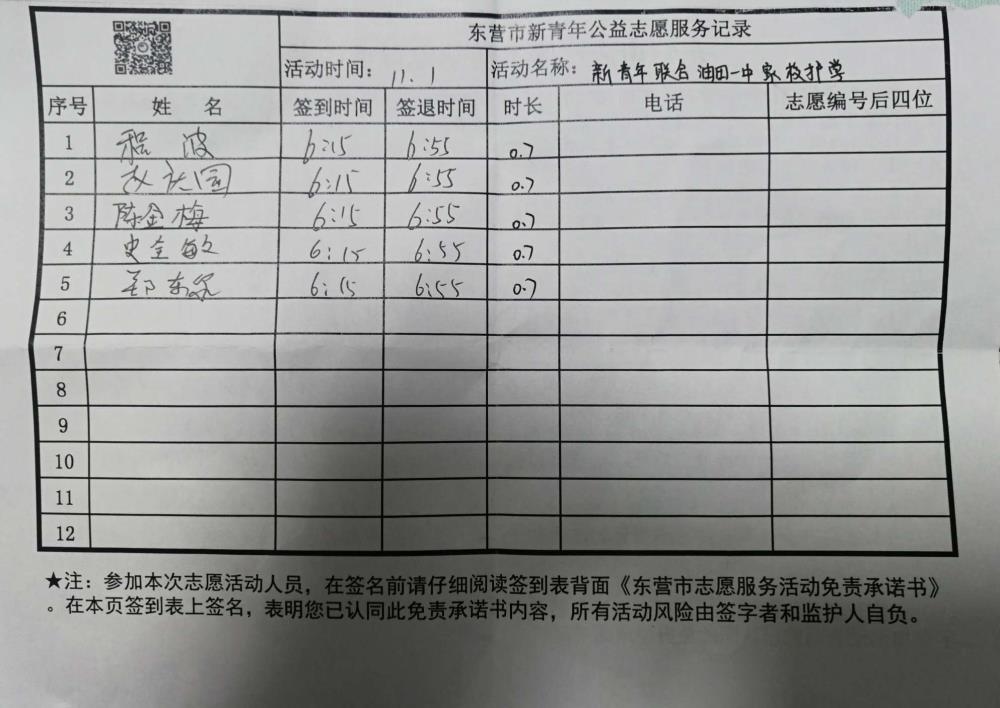 东营市新青年公益志愿服务记录
活动时间: 11.1 活动名称: 新青年联合油田一中家校护学
序号 姓 名 签到时间 签退时间 时长 电话 志愿编号后四位
1 程波 6:15 6:55 0.7
2 6:15 6:55 0.7
3 陈金梅 6:15 6:55 0.7
4 史全敏 6:15 6:55 0.7
5 郑东 6:15 6:55 0.7
6
7
8
9
10
11
12
★注：参加本次志愿活动人员，在签名前请仔细阅读签到表背面《东营市志愿服务活动免责承诺书》
。在本页签到表上签名，表明您已认同此免责承诺书内容，所有活动风险由签字者和监护人自负。